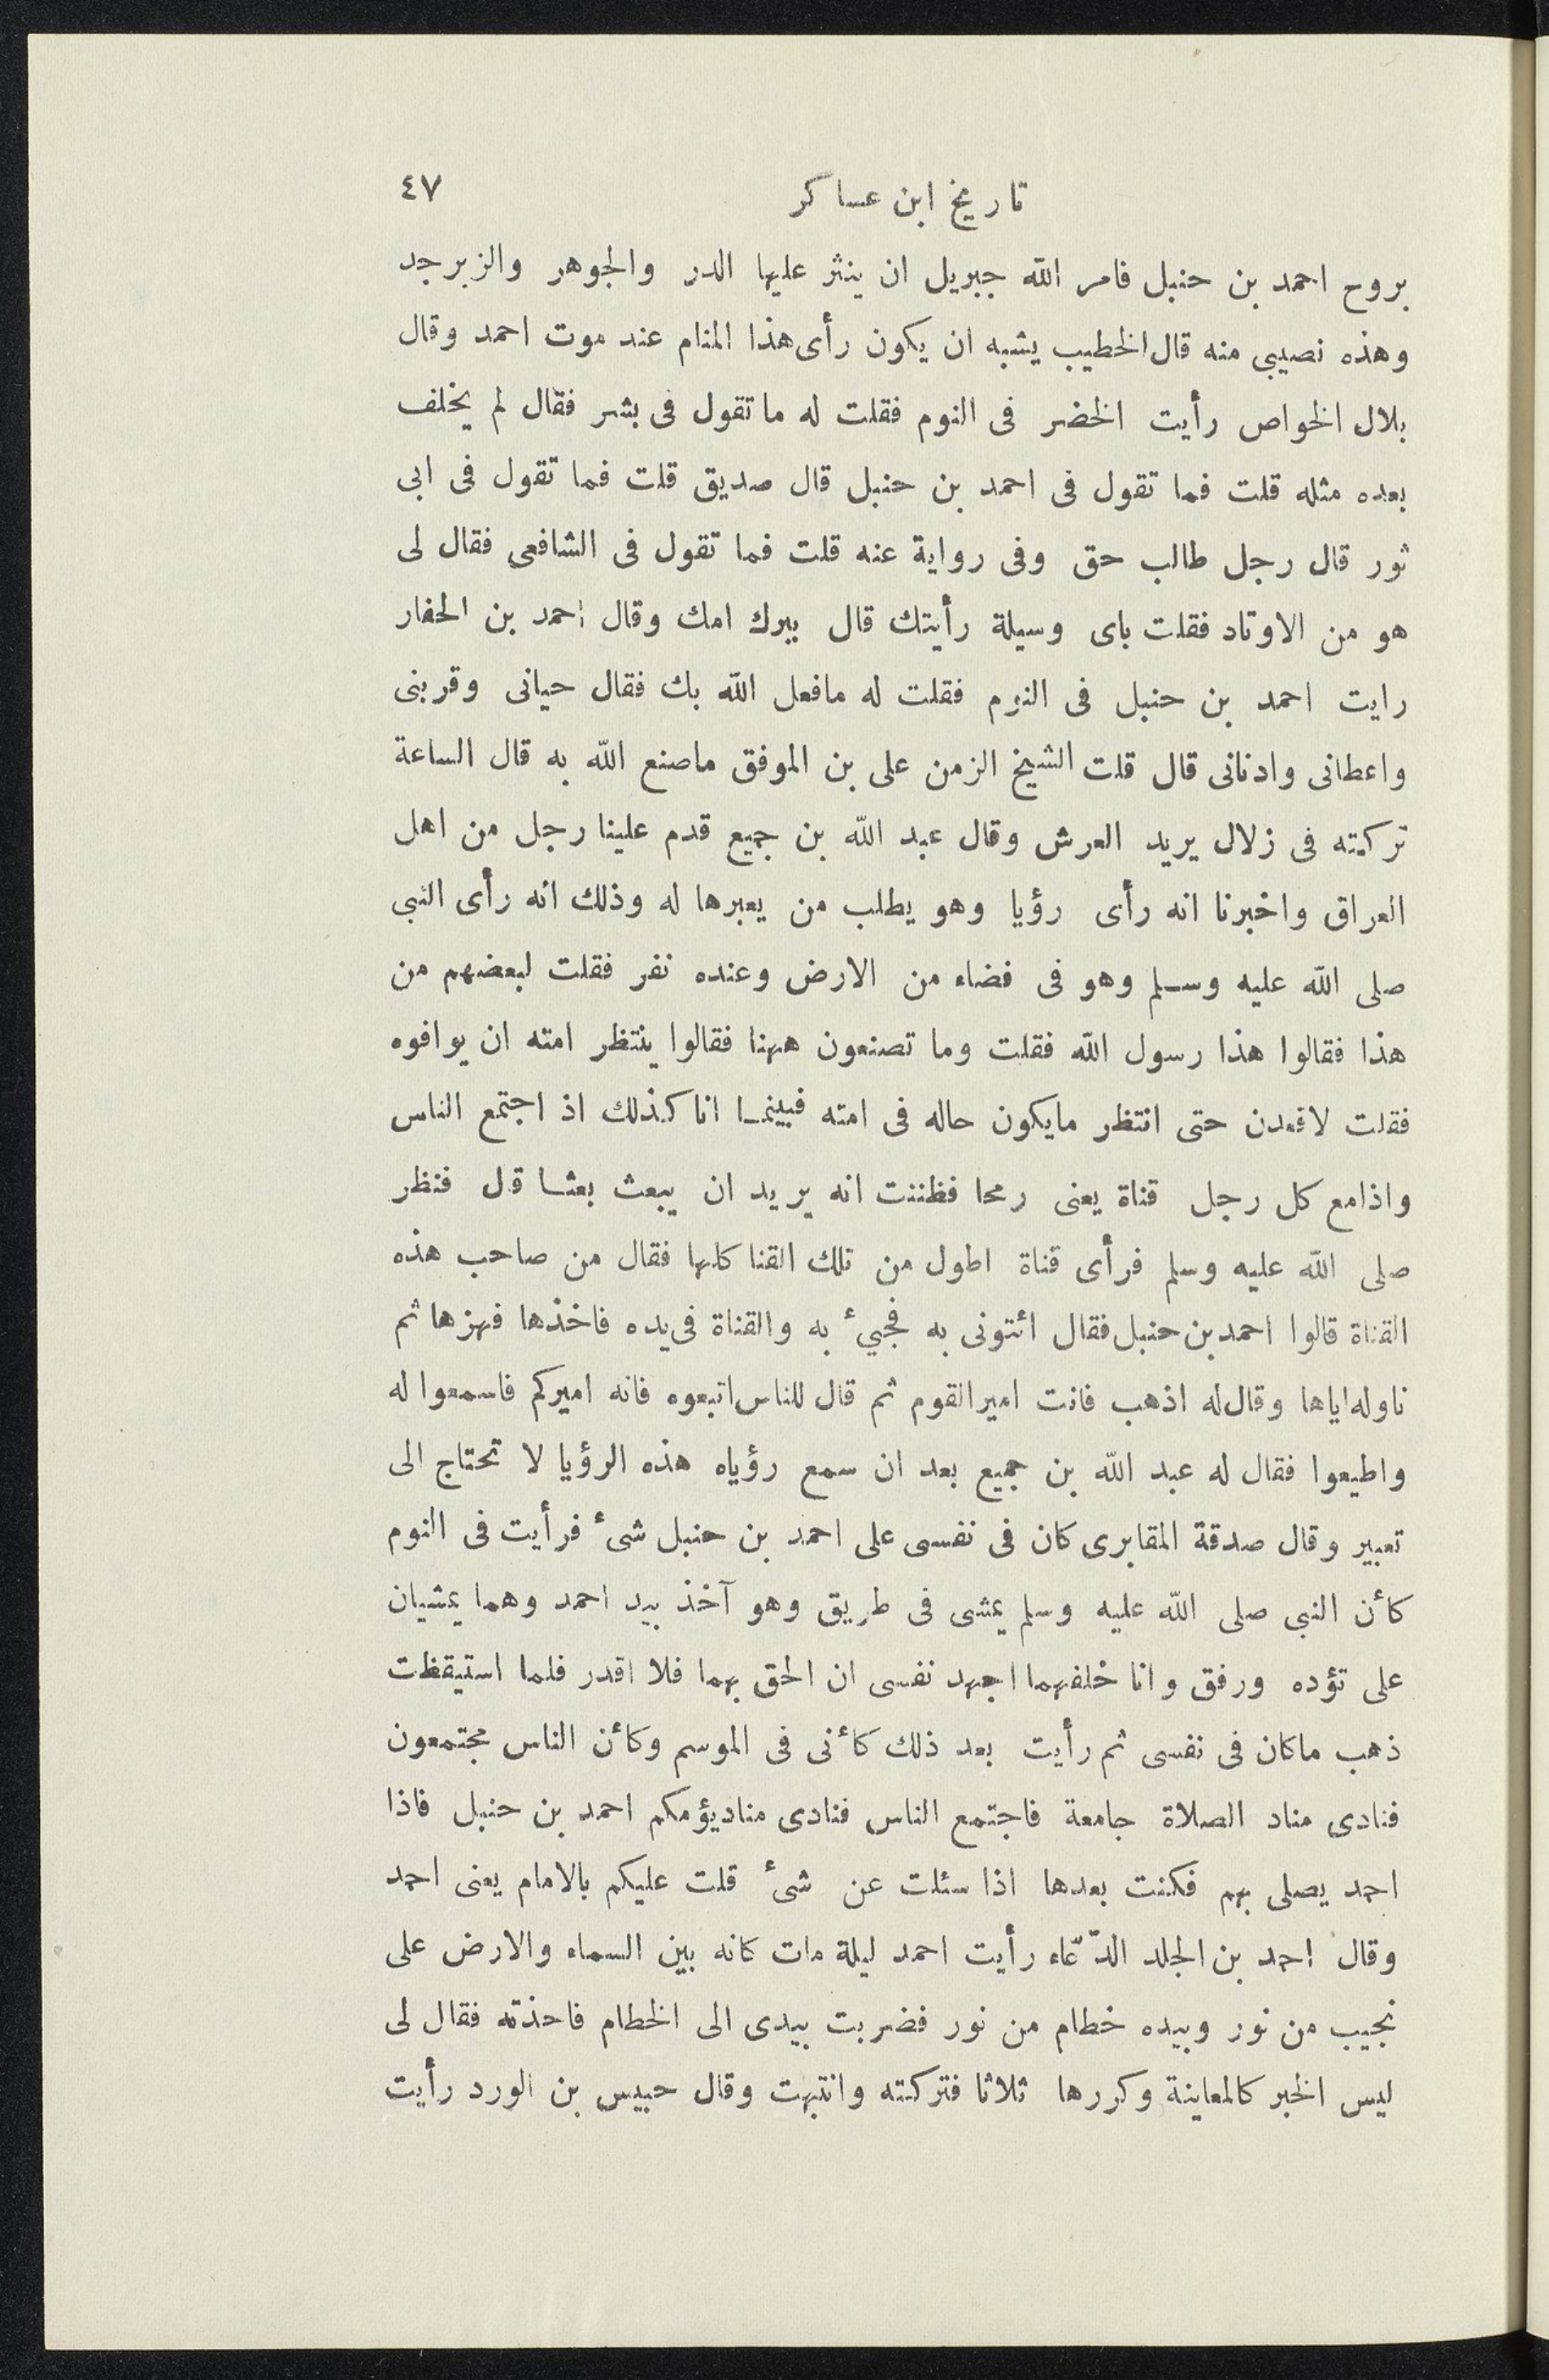 تاريخ ابن عساكر ٤٧
بروح احمد بن حنبل فامر الله جبريل ان ينثر عليها الدر والجوهر والزبرجد
وهذه نصيبى منه قال الخطيب يشبه ان يكون رأى هذا المنام عند موت احمد وقال
بلال الخواص رأيت الخضر فى النوم فقلت له ما تقول فى بشر فقال لم يخلف
بعده مثله قلت فما تقول فى احمد بن حنبل قال صديق قلت فما تقول فى ابى
ثور قال رجل طالب حق وفى رواية عنه قلت فما تقول فى الشافعى فقال لى
هو من الاوتاد فقلت باى وسيلة رأيتك قال ببرك امك وقال احمد بن الحفار
رايت احمد بن حنبل فى النوم فقلت له مافعل الله بك فقال حيانى وقربنى
واعطانى وادنانى قال قلت الشيخ الزمن على بن الموفق ماصنع الله به قال الساعة
تركته فى زلال يريد العرش وقال عبد الله بن جميع قدم علينا رجل من اهل
العراق واخبرنا انه رأى رؤيا وهو يطلب من يعبرها له وذلك انه رأى النبى
صلى الله عليه وسلم وهو فى فضاء من الارض وعنده نفر فقلت لبعضهم من
هذا فقالوا هذا رسول الله فقلت وما تصنعون ههنا فقالوا ينتظر امته ان يوافوه
فقلت لاقعدن حتى انتظر مايكون حاله فى امته فبينما انا كذلك اذ اجتمع الناس
واذامع كل رجل قناة يعنى رمحا فظننت انه يريد ان يبعث بعثا قل فنظر
صلى الله عليه وسلم فرأى قناة اطول من تلك القنا كلها فقال من صاحب هذه
القناة قالوا احمد بن حنبل فقال ائتونى به فجيء به والقناة فى يده فاخذها فهزها ثم
ناوله اياها وقال له اذهب فانت امير القوم ثم قال للناس اتبعوه فانه اميركم فاسمعوا له
واطيعوا فقال له عبد الله بن جميع بعد ان سمع رؤياه هذه الرؤيا لا تحتاج الى
تعبير وقال صدقة المقابرى كان فى نفسى على احمد بن حنبل شىء فرأيت فى النوم
كأن النبى صلى الله عليه وسلم يمشى فى طريق وهو آخذ بيد احمد وهما يمشيان
على تؤده ورفق وانا خلفهما اجهد نفسى ان الحق بهما فلا اقدر فلما استيقظت
ذهب ماكان فى نفسى ثم رأيت بعد ذلك كأنى فى الموسم وكأن الناس مجتمعون
فنادى مناد الصلاة جامعة فاجتمع الناس فنادى مناد يؤمكم احمد بن حنبل فاذا
احمد يصلى بهم فكنت بعدها اذا سئلت عن شىء قلت عليكم بالامام يعنى احمد
وقال احمد بن الجلد الدّعّاء رأيت احمد ليلة مات كانه بين السماء والارض على
نجيب من نور وبيده خطام من نور فضربت بيدى الى الخطام فاخذته فقال لى
ليس الخبر كالمعاينة وكررها ثلاثا فتركته وانتبهت وقال حبيس بن الورد رأيت